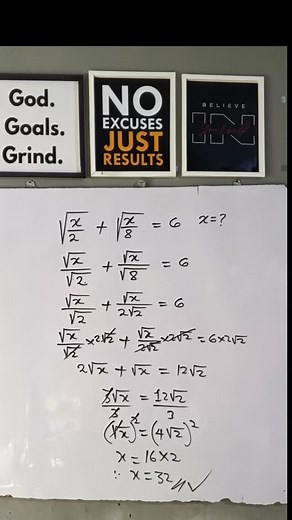 God.
Goals.
Grind.
NO
EXCUSES
JUST
RESULTS
BELIEVE
IN
√(x/2) + √(x/8) = 6 x=?
√x/√2 + √x/√8 = 6
√x/√2 + √x/2√2 = 6
√x/√2 × 2√2 + √x/2√2 × 2√2 = 6×2√2
2√x + √x = 12√2
3√x/3 = 12√2/3
(√x)² = (4√2)²
x = 16×2
∴ x = 32